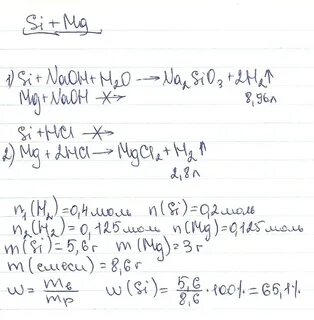 Si+Mg
1) Si+NaOH+H₂O → Na₂SiO₃+2H₂↑
Mg+NaOH -×→ 8,96л
Si+HCl -×→
2) Mg+2HCl → MgCl₂+H₂↑
2,8л
n₁(H₂)=0,4моль n(Si)=0,2моль
n₂(H₂)=0,125моль n(Mg)=0,125моль
m(Si)=5,6г m(Mg)=3г
m(смеси)=8,6г
w= mв/mр w(Si)= 5,6/8,6 ·100%=65,1%